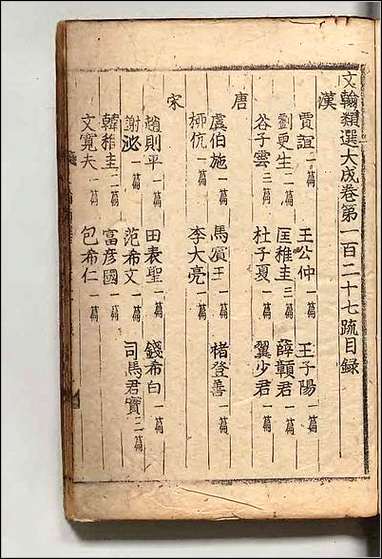 文翰類選大成卷第一百二十七疏目録
漢
賈誼一篇 王公仲一篇 王子陽一篇
劉更生二篇 匡稚圭三篇 薛贛君一篇
谷子雲三篇 杜子夏一篇 翼少君一篇
唐
虞伯施一篇 馬賓王一篇 褚登善一篇
柳伉一篇 李大亮一篇
宋
趙則平一篇 田表聖一篇 錢希白一篇
謝泌一篇 范希文一篇 司馬君實二篇
韓稚圭二篇 富彦國一篇
文寛夫一篇 包希仁一篇